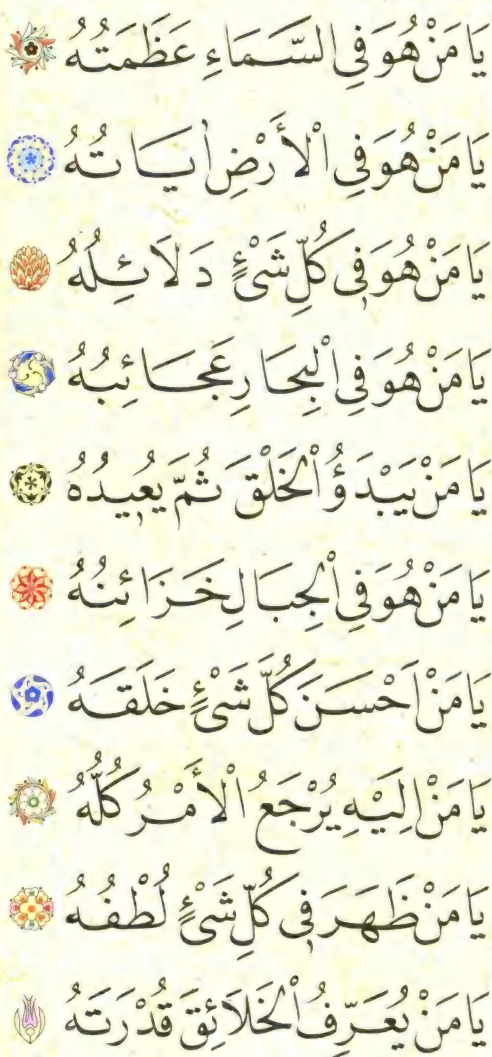 يَا مَنْ هُوَ فِي السَّمَاءِ عَظَمَتُهُ
يَا مَنْ هُوَ فِي الْأَرْضِ اٰيَاتُهُ
يَا مَنْ هُوَ فِي كُلِّ شَيْءٍ دَلَائِلُهُ
يَا مَنْ هُوَ فِي الْبِحَارِ عَجَائِبُهُ
يَا مَنْ يَبْدَؤُ الْخَلْقَ ثُمَّ يُعِيدُهُ
يَا مَنْ هُوَ فِي الْجِبَالِ خَزَائِنُهُ
يَا مَنْ اَحْسَنَ كُلَّ شَيْءٍ خَلَقَهُ
يَا مَنْ اِلَيْهِ يُرْجَعُ الْأَمْرُ كُلُّهُ
يَا مَنْ ظَهَرَ فِي كُلِّ شَيْءٍ لُطْفُهُ
يَا مَنْ يُعَرِّفُ الْخَلَائِقَ قُدْرَتَهُ